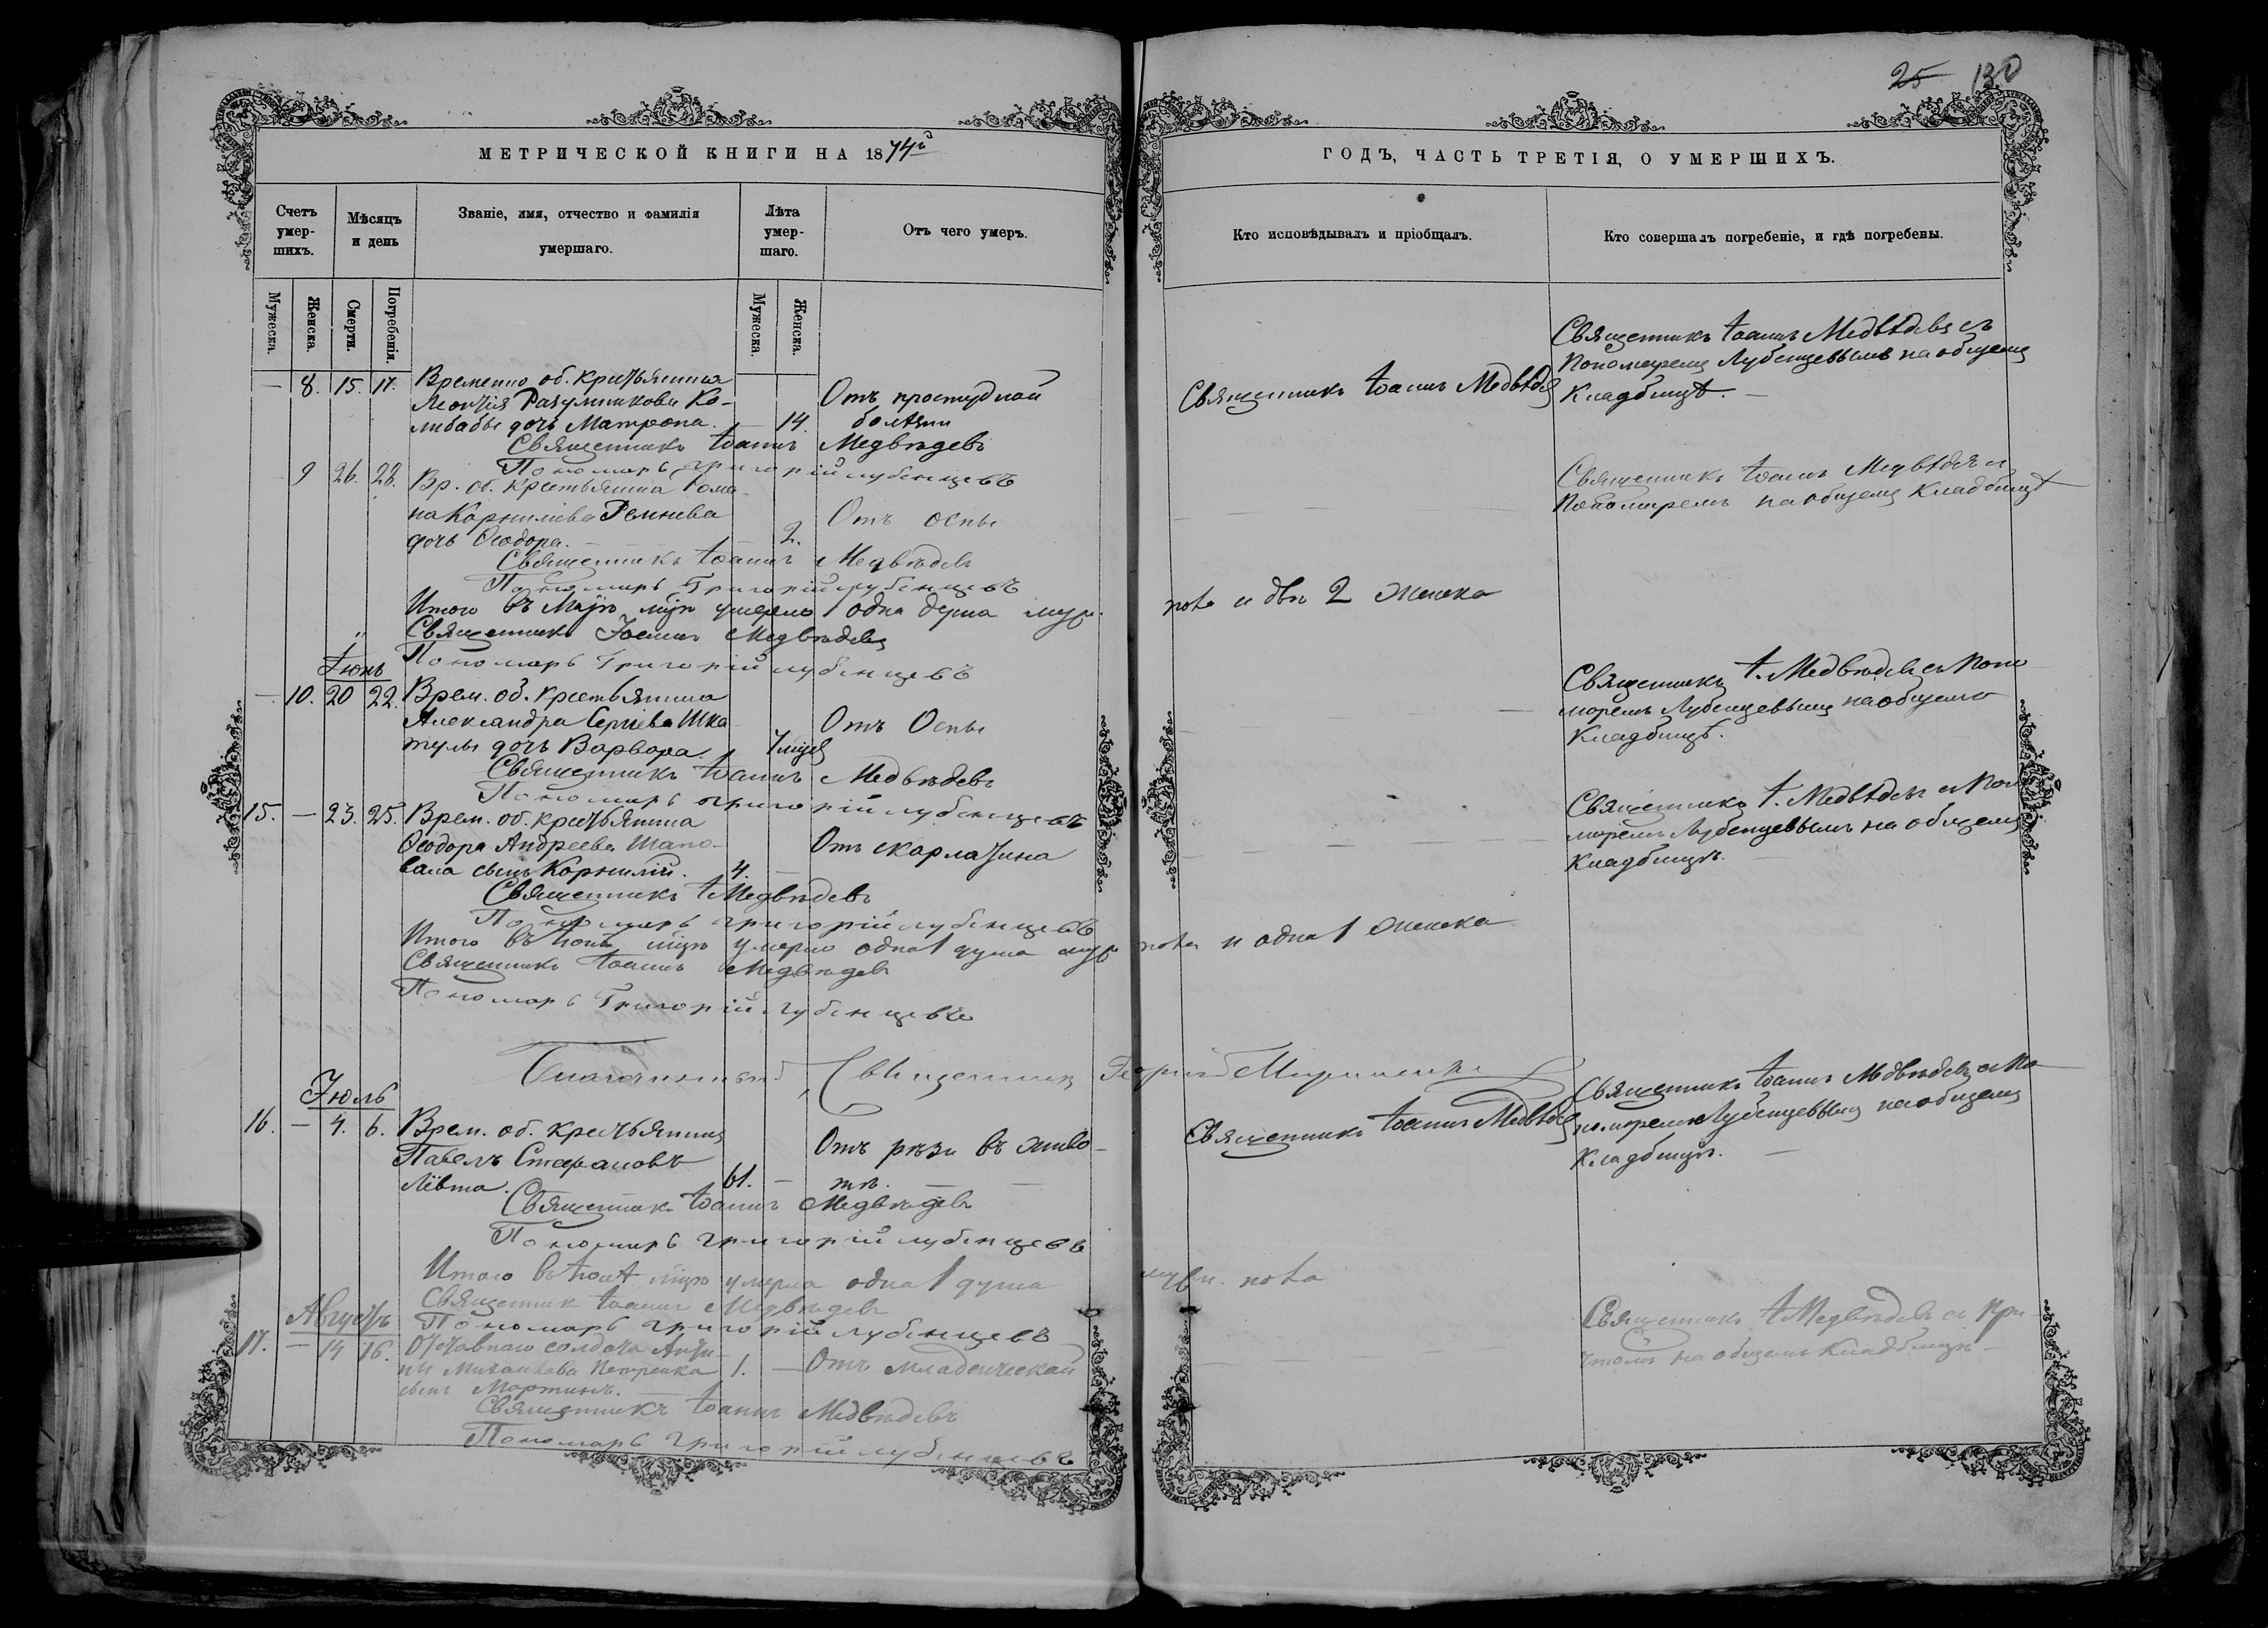 25 130
МЕТРИЧЕСКОЙ КНИГИ НА 1874й
ГОДЪ, ЧАСТЬ ТРЕТІЯ, О УМЕРШИХЪ.
Счетъ умер-шихъ.
Мѣсяцъ и день
Званіе, имя, отчество и фамилія умершаго.
Лѣта умер-шаго.
Отъ чего умеръ.
Кто исповѣдывалъ и пріобщалъ.
Кто совершалъ погребеніе, и гдѣ погребены.
Мужеска.
Женска.
Смерти.
Погребенія.
Мужеска.
Женска.
— 8. 15. 17. Временно об. крестьянина
Леонтія Разумникова Ко-
либабы дочь Матрона. — 14.
Отъ простудной
болѣзни
Священникъ Іоаннъ Медвѣд
Священникъ Іоаннъ Медвѣдевъ съ
Пономаремъ Лубенцевымъ на общемъ
Кладбищѣ. —
Священникъ Іоаннъ Медвѣдевъ
Пономарь Григорій Лубенцевъ
9 26. 28. Вр. об. крестьянина Рома-
на Корнилiева Ремнева
дочь Ѳеодора. — 2.
Отъ оспы
Священникъ Іоаннъ Медвѣдевъ съ
Пономаремъ на общемъ Кладбищѣ
Священникъ Іоаннъ Медвѣдевъ
Пономарь Григорій Лубенцевъ
Итого въ Маѣ мцѣ умерло 1 одна душа муже-
пола и двѣ 2 женска
Священникъ Іоаннъ Медвѣдевъ
Пономарь Григорій Лубенцевъ
Іюнь
— 10. 20 22. Врем. об. крестьянина
Александра Сергіева Шка-
тулы дочь Варвара. 7 мцев
Отъ Оспы
Священникъ І. Медвѣдевъ съ Поно-
моремъ Лубенцевымъ на общемъ
Кладбищѣ.
Священникъ Іоаннъ Медвѣдевъ
Пономарь Григорій Лубенцевъ
15. — 23. 25. Врем. об. крестьянина
Ѳеодора Андреева Шапо-
вала сынъ Корнилій. 4. —
Отъ скарлатина
Священникъ І. Медвѣдевъ съ Поно-
маремъ Лубенцевымъ на общемъ
Кладбищѣ. —
Священникъ І Медвѣдевъ
Пономарь Григорій Лубенцевъ
Итого въ Іюнѣ мцѣ умерло одна 1 душа муже
пола и одна 1 женска
Священникъ Іоаннъ Медвѣдевъ
Пономарь Григорій Лубенцевъ
Благочинный, Священникъ Георгій
Іюль
16. — 4. 6. Врем. об. крестьянинъ
Павелъ Стефановъ
Лѣвта. 61. —
Отъ рѣзи въ живо-
тѣ. —
Священникъ Іоаннъ Медвѣдев
Священникъ Іоаннъ Медвѣдевъ съ По-
номоремъ Лубенцевымъ на общемъ
Кладбищѣ. —
Священникъ Іоаннъ Медвѣдевъ
Пономарь Григорій Лубенцевъ
Итого въ Іюлѣ мцѣ умерла одна 1 душа
муж. пола
Священник Іоаннъ Медвѣдевъ
Пономарь Григорій Лубенцевъ
Августъ
17. — 14 16. Отставнаго солдата Анти-
пы Михайлова Петренка 1. —
сынъ Мартинъ.
Отъ младенческой
Священникъ І Медвѣдевъ съ При-
чтомъ на общемъ Кладбищѣ —
Священникъ Іоаннъ Медвѣдевъ
Пономарь Григорій Лубенцевъ